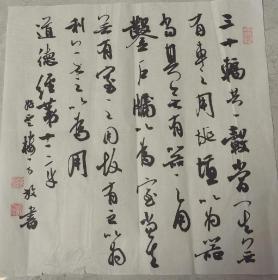 三十輻共一轂當其無
有車之用埏埴以為器
當其無有器之用
鑿戶牖以為室當其
無有室之用故有之以為
利無之以為用
道德經第十一章
書